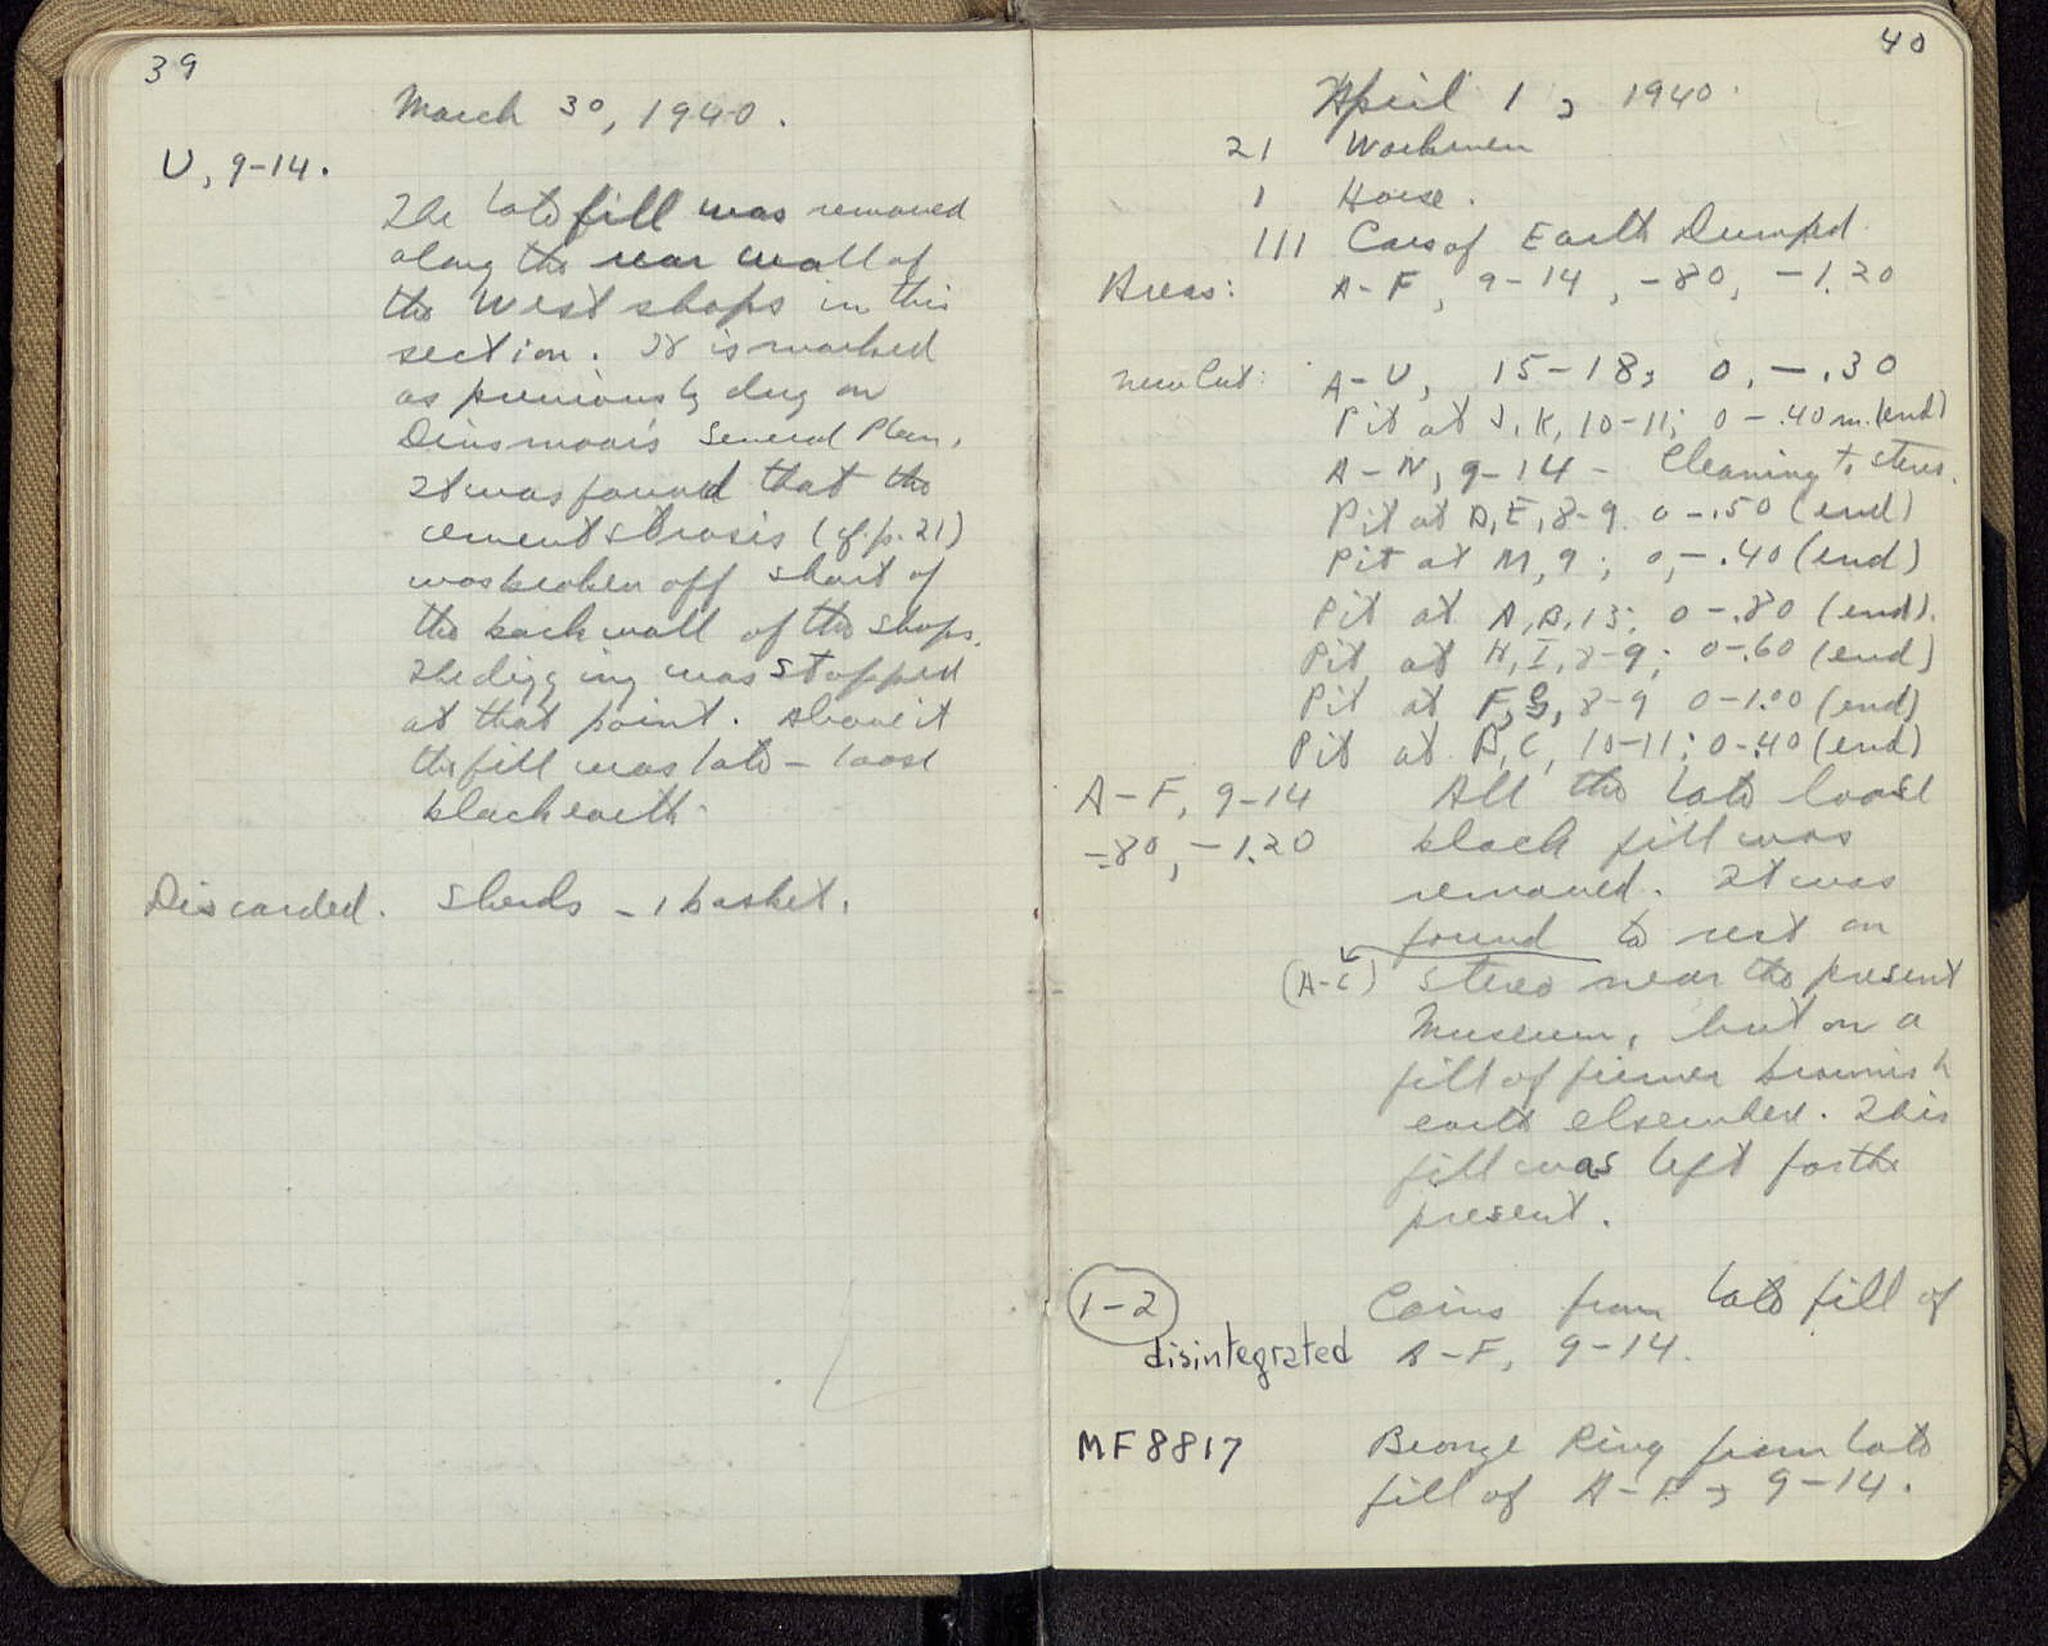 39
March 30, 1940.
U, 9-14.
The late fill was removed
along the rear wall of
the West shops in this
section. It is marked
as previously dug on
Dinsmoor's General Plan.
It was found that the
cement strosis (cf. p. 21)
was broken off short of
the back wall of the shops.
The digging was stopped
at that point. Above it
the fill was late - loose
black earth.
Discarded. Sherds - 1 basket.
40
April 1, 1940.
21 Workmen
1 Horse.
111 Cars of Earth Dumped.
Areas: A-F, 9-14, -80, -1.20
New Cut: A-U, 15-18; 0, -.30
Pit at J, K, 10-11; 0 -.40 m. (end)
A-N, 9-14 - Cleaning to stereo.
Pit at D, E, 8-9. 0 -.50 (end)
Pit at M, 9; 0, -.40 (end)
Pit at A, B, 13; 0 -.80 (end).
Pit at H, I, 8-9; 0-.60 (end)
Pit at F, G, 8-9 0-1.00 (end)
Pit at B, C, 10-11; 0-.40 (end)
A-F, 9-14 All the late loose
-.80, -1.20 black fill was
removed. It was
found to rest on
(A-C) stereo near the present
Museum, but on a
fill of firmer brownish
earth elsewhere. This
fill was left for the
present.
1-2 Coins from late fill of
disintegrated A-F, 9-14.
MF8817 Bronze Ring from late
fill of A-F, 9-14.